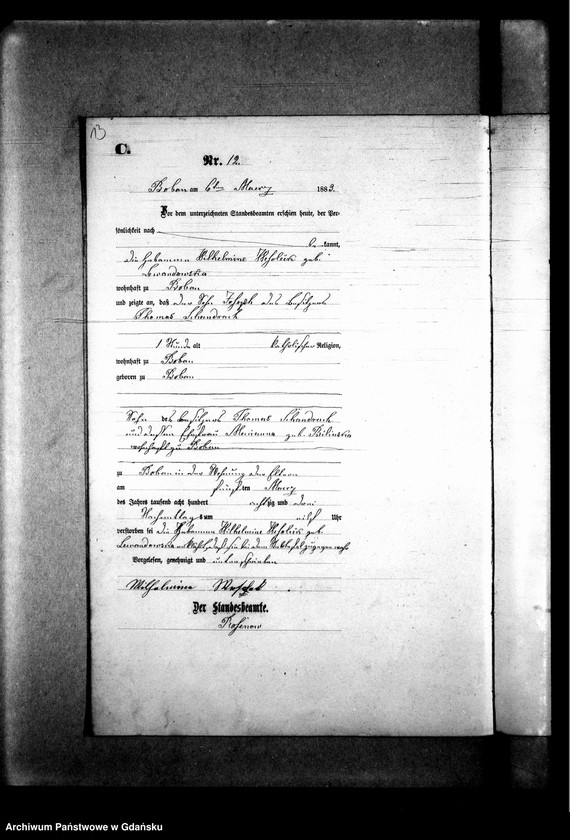 13
C.
Nr. 12.
Boban am 6ten Maerz 1883.
Vor dem unterzeichneten Standesbeamten erschien heute, der Per-
sönlichkeit nach
be kannt,
die Hebamme Wilhelmine geb.
Lewandowska
wohnhaft zu Boban
und zeigte an, daß der Sohn Joseph des Besitzers
Thomas Schandrach
1 Stunde alt katholischer Religion,
wohnhaft zu Boban
geboren zu Boban
Sohn des Besitzers Thomas Schandrach
und dessen Ehefrau Marianna geb. Bilinska
wohnhaft zu Boban
zu Boban in der Wohnung der Eltern
am fünften Maerz
des Jahres tausend acht hundert achtzig und drei
Nachmittags um Uhr
verstorben sei die Hebamme Wilhelmine geb.
Lewandowska
Vorgelesen, genehmigt und unterschrieben
Wilhelmine
Der Standesbeamte.
Rosenow
Archiwum Państwowe w Gdańsku